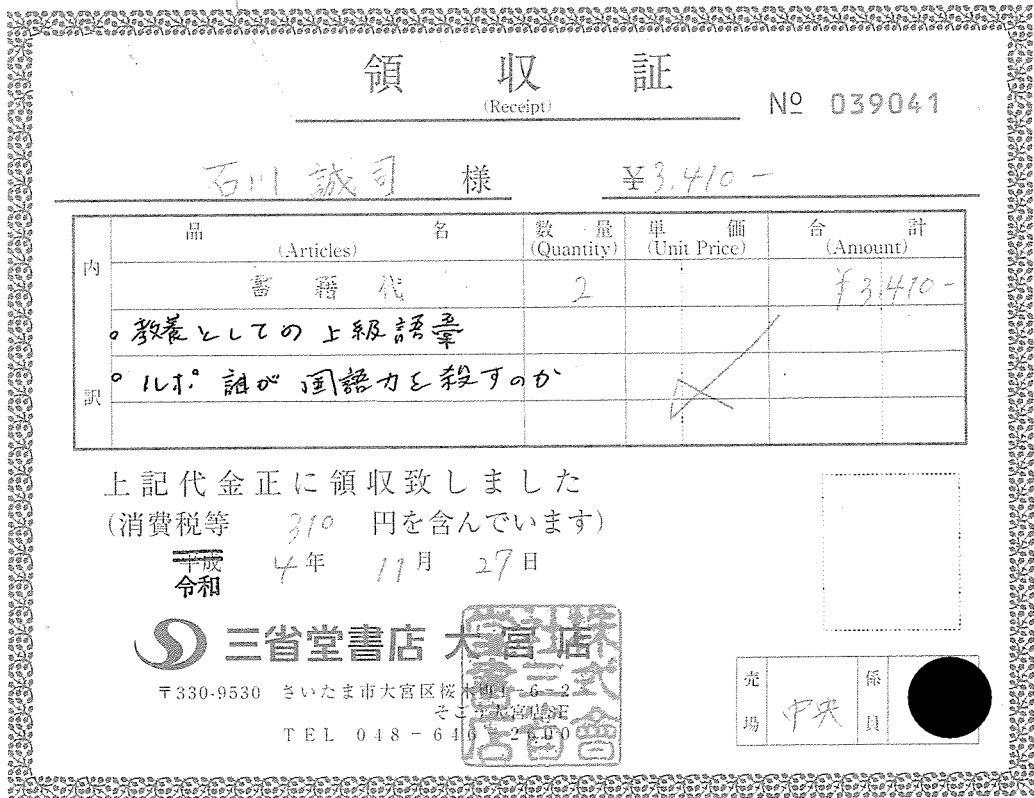 領収証
(Receipt)
Nº 039041
石川 誠司 様 ¥3,410-
内訳
品名 (Articles) 数量 (Quantity) 単価 (Unit Price) 合計 (Amount)
書籍代 2 ¥3,410-
。教養としての上級語彙
。ルポ 誰が国語力を殺すのか
上記代金正に領収致しました
(消費税等 310 円を含んでいます)
平成
令和 4年 11月 27日
三省堂書店 大宮店
〒330-9530 さいたま市大宮区桜木町1-6-2
そごう大宮店8F
TEL 048-646-2600
株式會社三省堂書店
売場 中央 係員